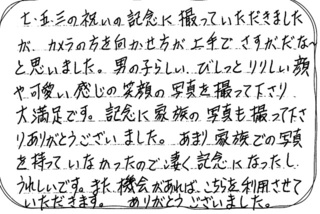 七・五・三の祝いの記念に撮っていただきました
が、カメラの方を向かせ方が上手でさすがだな〜
と思いました。男の子らしい、びしっとりりしい顔
や可愛い感じの笑顔の写真を撮って下さり
大満足です。記念に家族の写真も撮って下さ
りありがとうございました。あまり家族での写真
を持っていなかったので、凄く記念になったし、
うれしいです。また機会があれば、こちらを利用させて
いただきます。ありがとうございました。